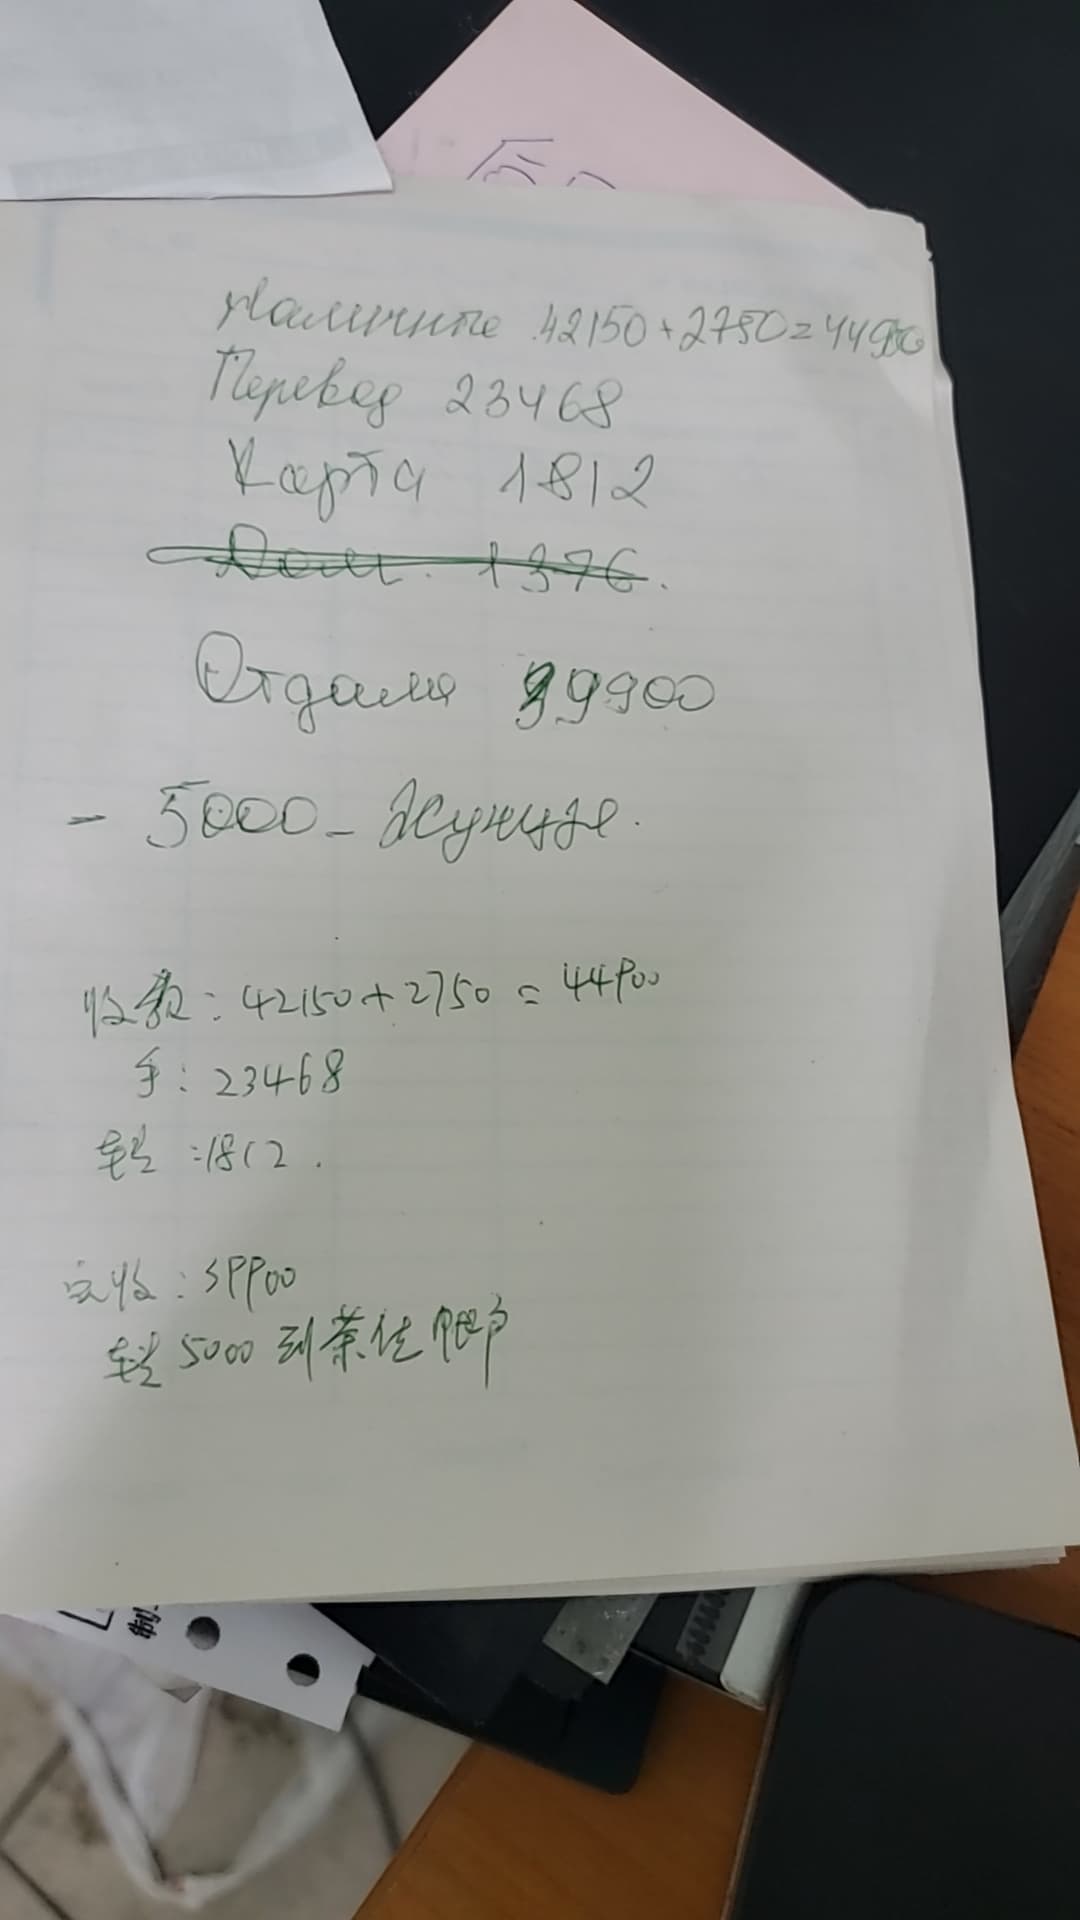 Наличные 42150+2750=44900
Перевод 23468
Карта 1812
Дол. 1376.
Отдали 39900
- 5000 -
收款: 42150+2750=44900
手: 23468
转: 1812.
实收: 39900
转 5000 到 账户
制